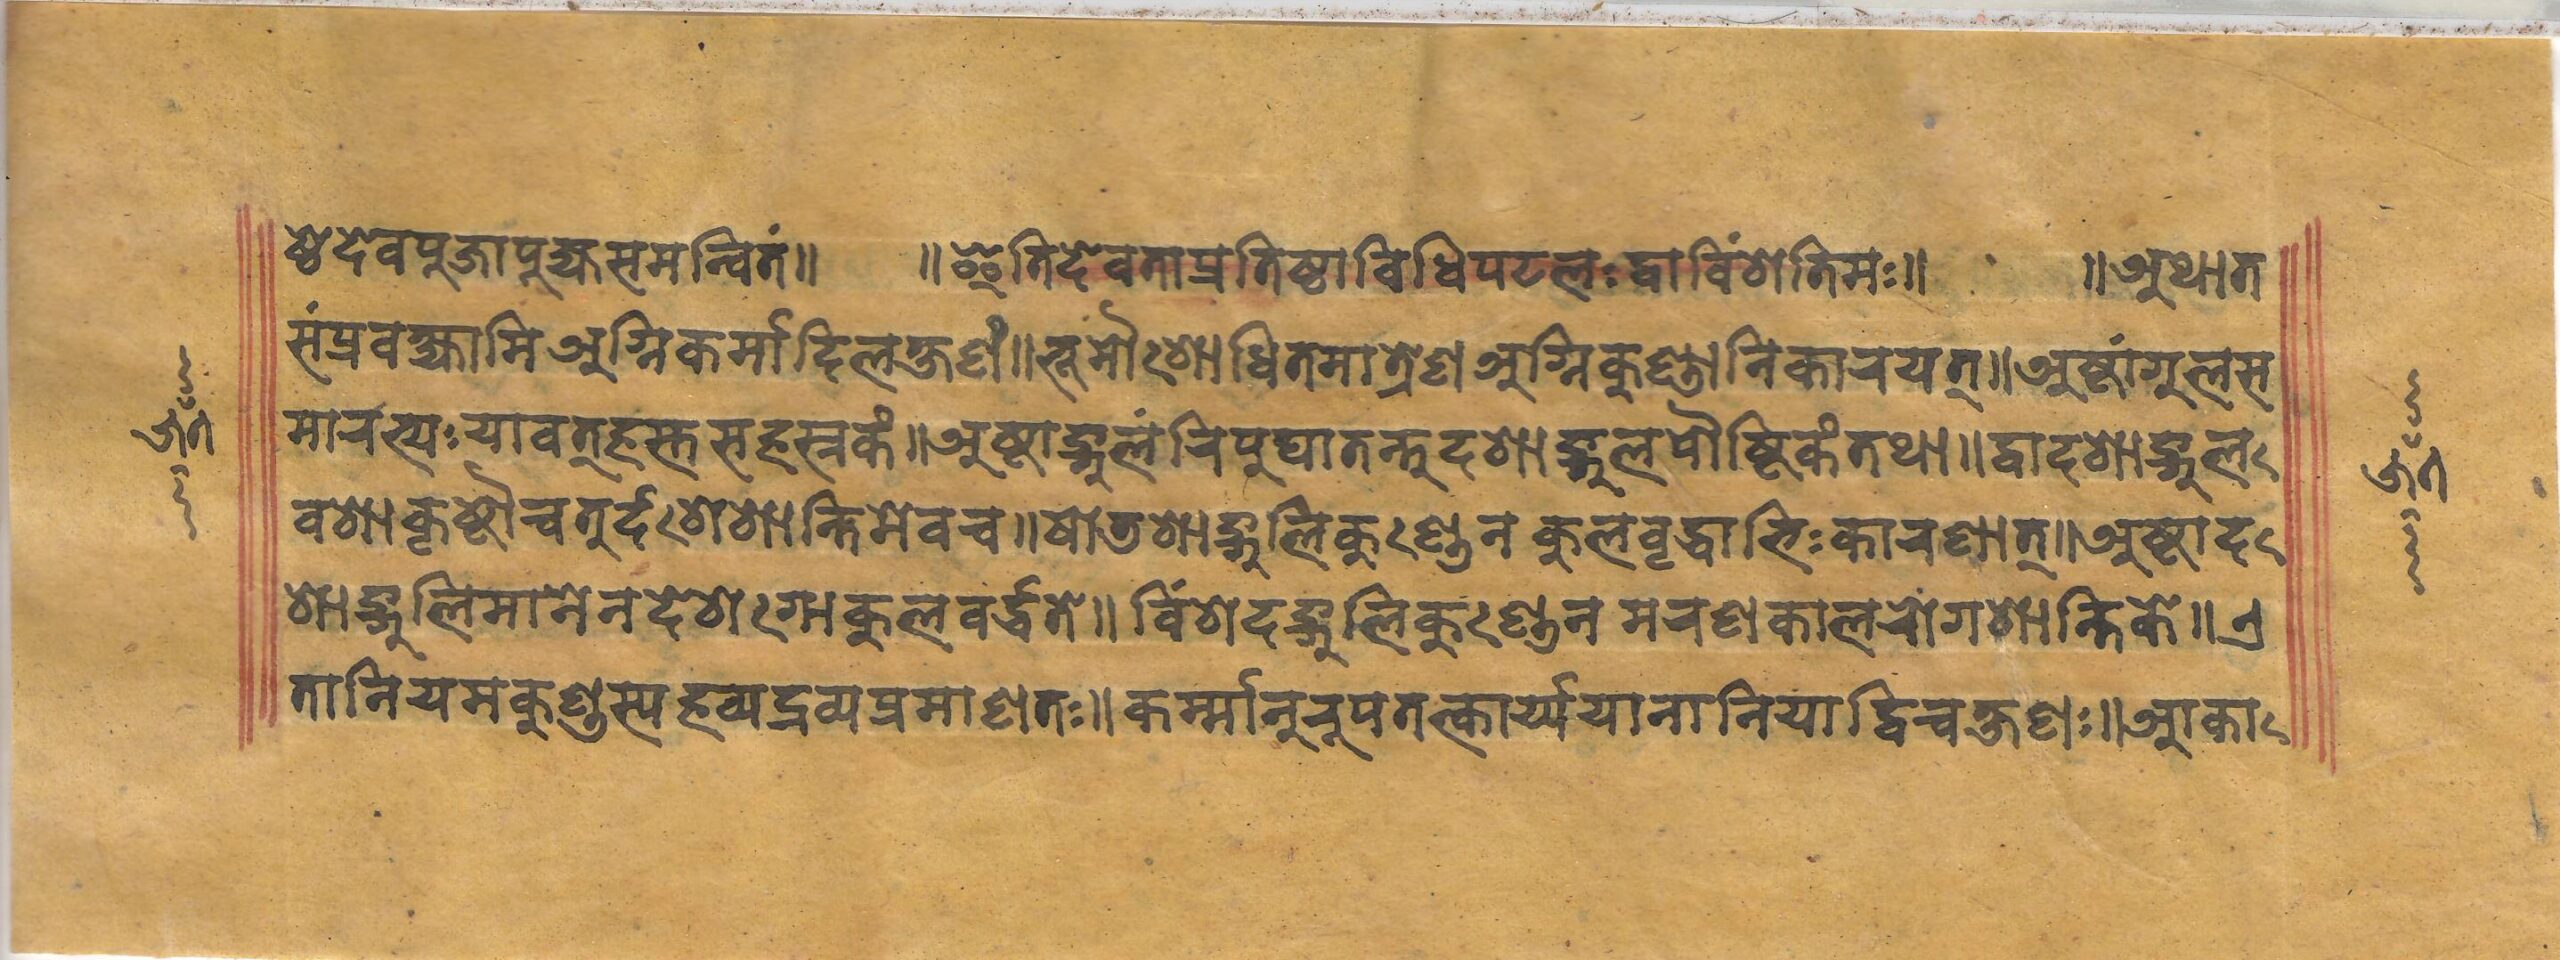 ष्ठेदेवपुजापुह्यसमन्वितं॥ ॥इतिदेवताप्रतिष्ठाविधिपटलःद्वाविंशतिमः॥ ॥अथात
संप्रवक्ष्यामिअग्निकर्मादिलक्षणं॥भूमौशोधितमात्रेणअग्निकुण्डानिकारयत्॥अष्टांगुलस
मारभ्यःयावत्हस्तसहस्रकं॥अष्टाङ्गुलंरिपुघातन्तुदशाङ्गुलपौष्टिकंतथा॥द्वादशाङ्गुल
वशाकृष्टौचतुर्दशेशान्तिमेवच॥षोडशाङ्गुलिकुण्डेनकुलवृद्धाभिःकारणात्॥अष्टाद
शाङ्गुलिमानेनदेशेगोकुलवर्द्धते॥विंशदङ्गुलिकुण्डेनमरणकालरोगशान्तिके॥ए
तानियमकुण्डस्यहव्यद्रव्यप्रमाणतः॥कर्म्मानुरूपतत्कार्य्ययानानियाद्विचक्षणः॥आका